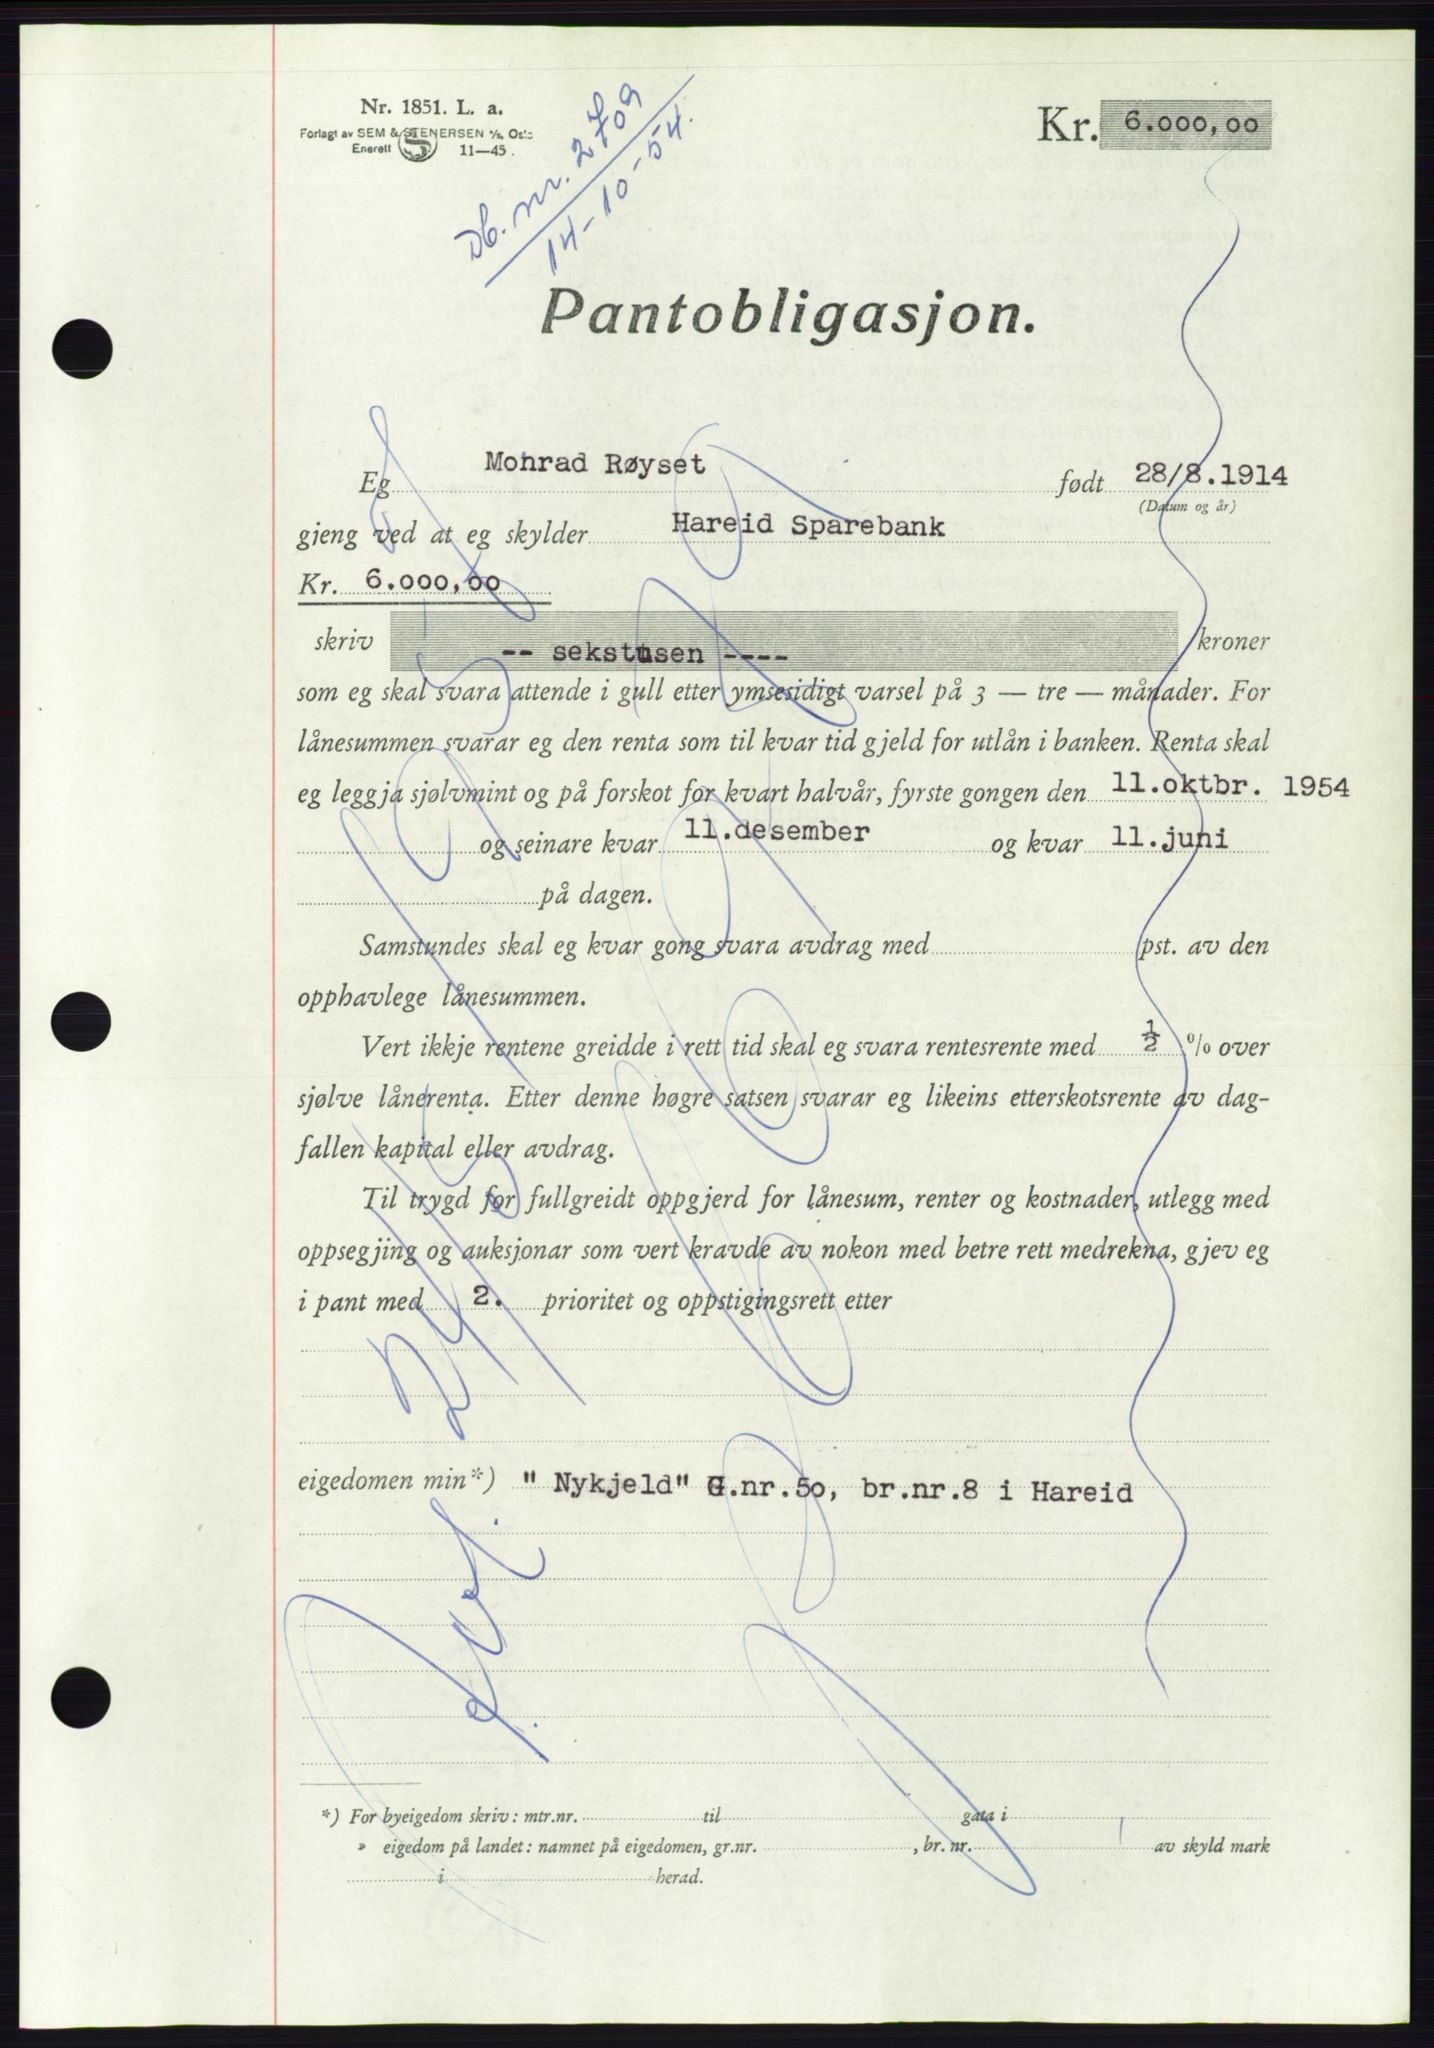 Nr. 1851. L. a.
Forlagt av SEM & STENERSEN A/S, Oslo
Enerett S 11—45.
Db. nr. 2709
14-10-54.
Kr. 6.000,00
Pantobligasjon.
Eg Monrad Røyset født 28/8.1914
(Datum og år)
gjeng ved at eg skylder Hareid Sparebank
Kr. 6.000,00
skriv -- sekstusen ---- kroner
som eg skal svara attende i gull etter ymsesidigt varsel på 3 — tre — månader. For
lånesummen svarar eg den renta som til kvar tid gjeld for utlån i banken. Renta skal
eg leggja sjølvmint og på forskot for kvart halvår, fyrste gongen den 11.oktbr. 1954
og seinare kvar 11.desember og kvar 11.juni
på dagen.
Samstundes skal eg kvar gong svara avdrag med pst. av den
opphavlege lånesummen.
Vert ikkje rentene greidde i rett tid skal eg svara rentesrente med ½ % over
sjølve lånerenta. Etter denne høgre satsen svarar eg likeins etterskotsrente av dag-
fallen kapital eller avdrag.
Til trygd for fullgreidt oppgjerd for lånesum, renter og kostnader, utlegg med
oppsegjing og auksjonar som vert kravde av nokon med betre rett medrekna, gjev eg
i pant med 2. prioritet og oppstigingsrett etter
eigedomen min*) " Nykjeld" G.nr.50, br.nr.8 i Hareid
*) For byeigedom skriv: mtr.nr. til gata i
» eigedom på landet: namnet på eigedomen, gr.nr. , br. nr. av skyld mark
i herad.